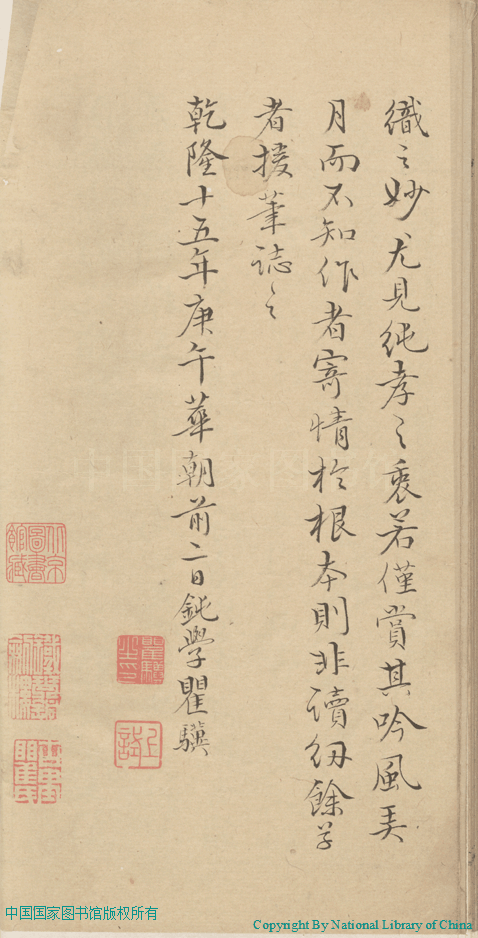 織之妙尤見純孝之衷若僅賞其吟風弄
月而不知作者寄情於根本則非讀紉餘草
者援筆誌之
乾隆十五年庚午華朝前二日鈍學瞿驥
北京圖書館藏
中国国家图书馆
中国国家图书馆版权所有
Copyright By National Library of China